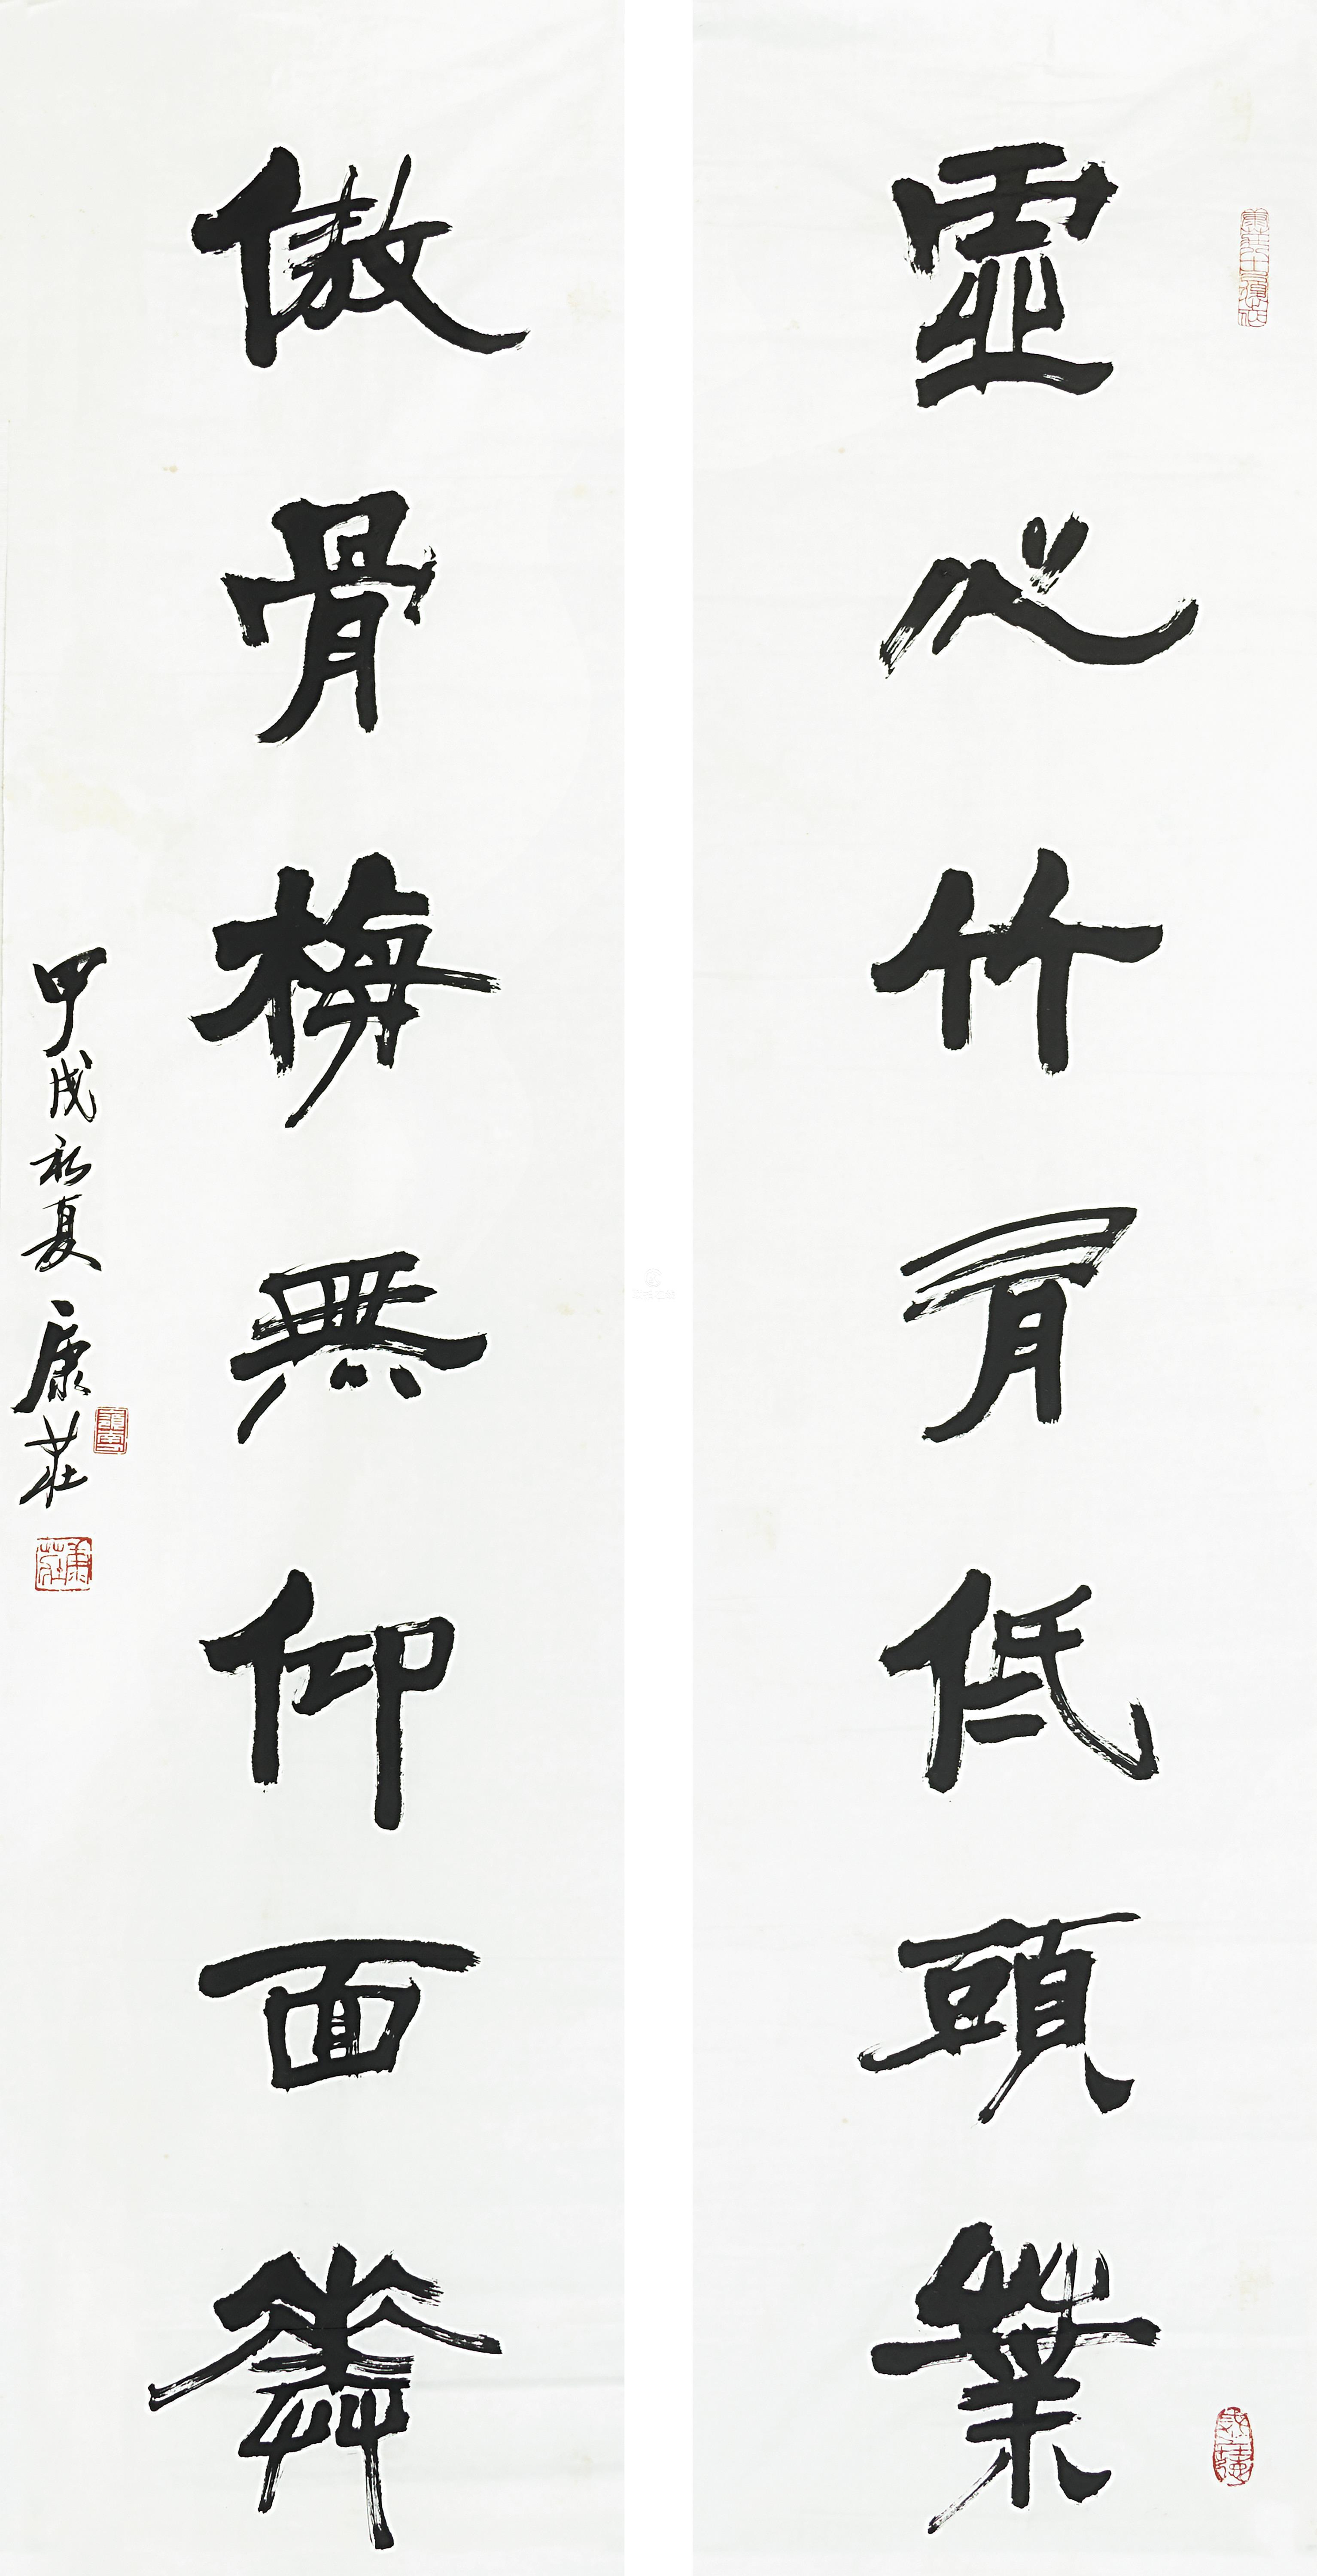 虛心竹有低頭葉
傲骨梅無仰面華
甲戌初夏 康莊
康莊